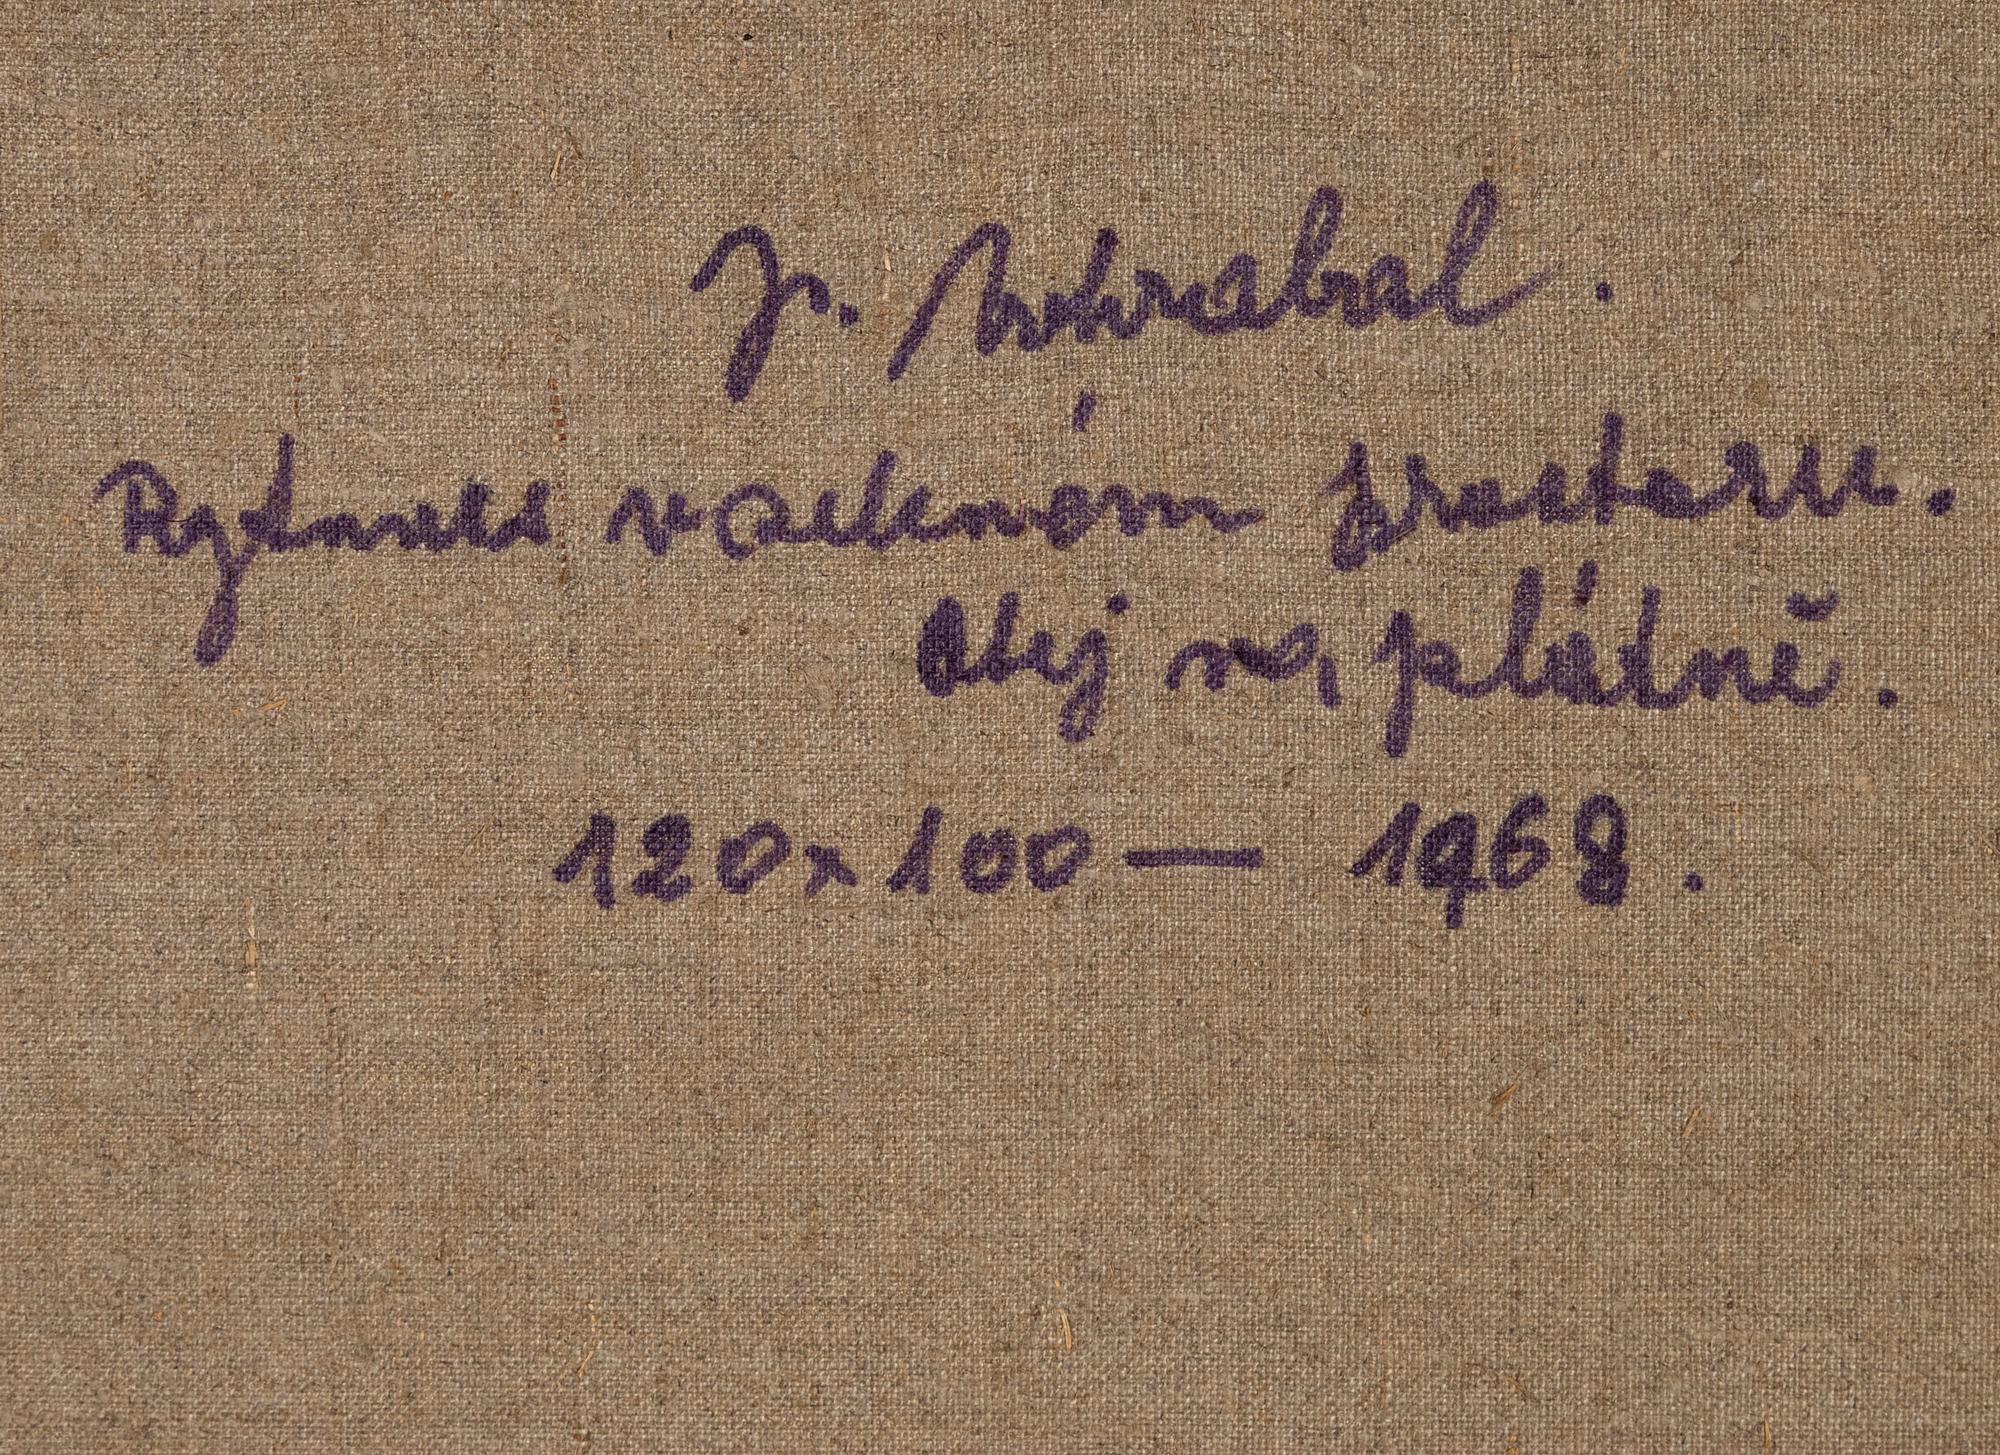 Jr. Dokrabal.
Rytmus v aclném prostoru.
Olej na plátně.
120x100 — 1968.